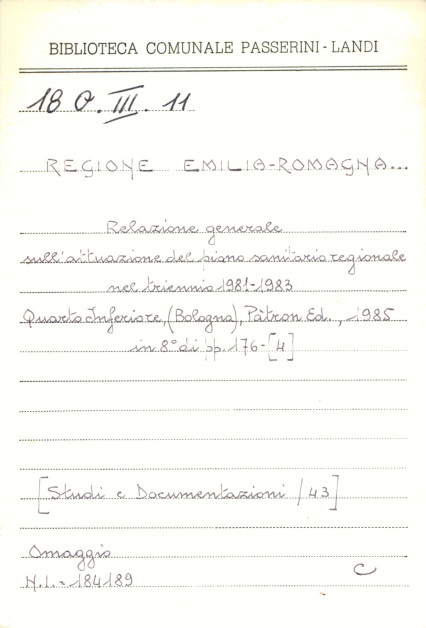 BIBLIOTECA COMUNALE PASSERINI-LANDI
18 O. III. 11
REGIONE EMILIA-ROMAGNA...
Relazione generale
sull'attuazione del piano sanitario regionale
nel triennio 1981-1983
Quarto Inferiore, (Bologna), Pàtron Ed., 1985
in 8° di pp. 176-[4]
[Studi e Documentazioni / 43]
Omaggio
N.I.- 184189
C